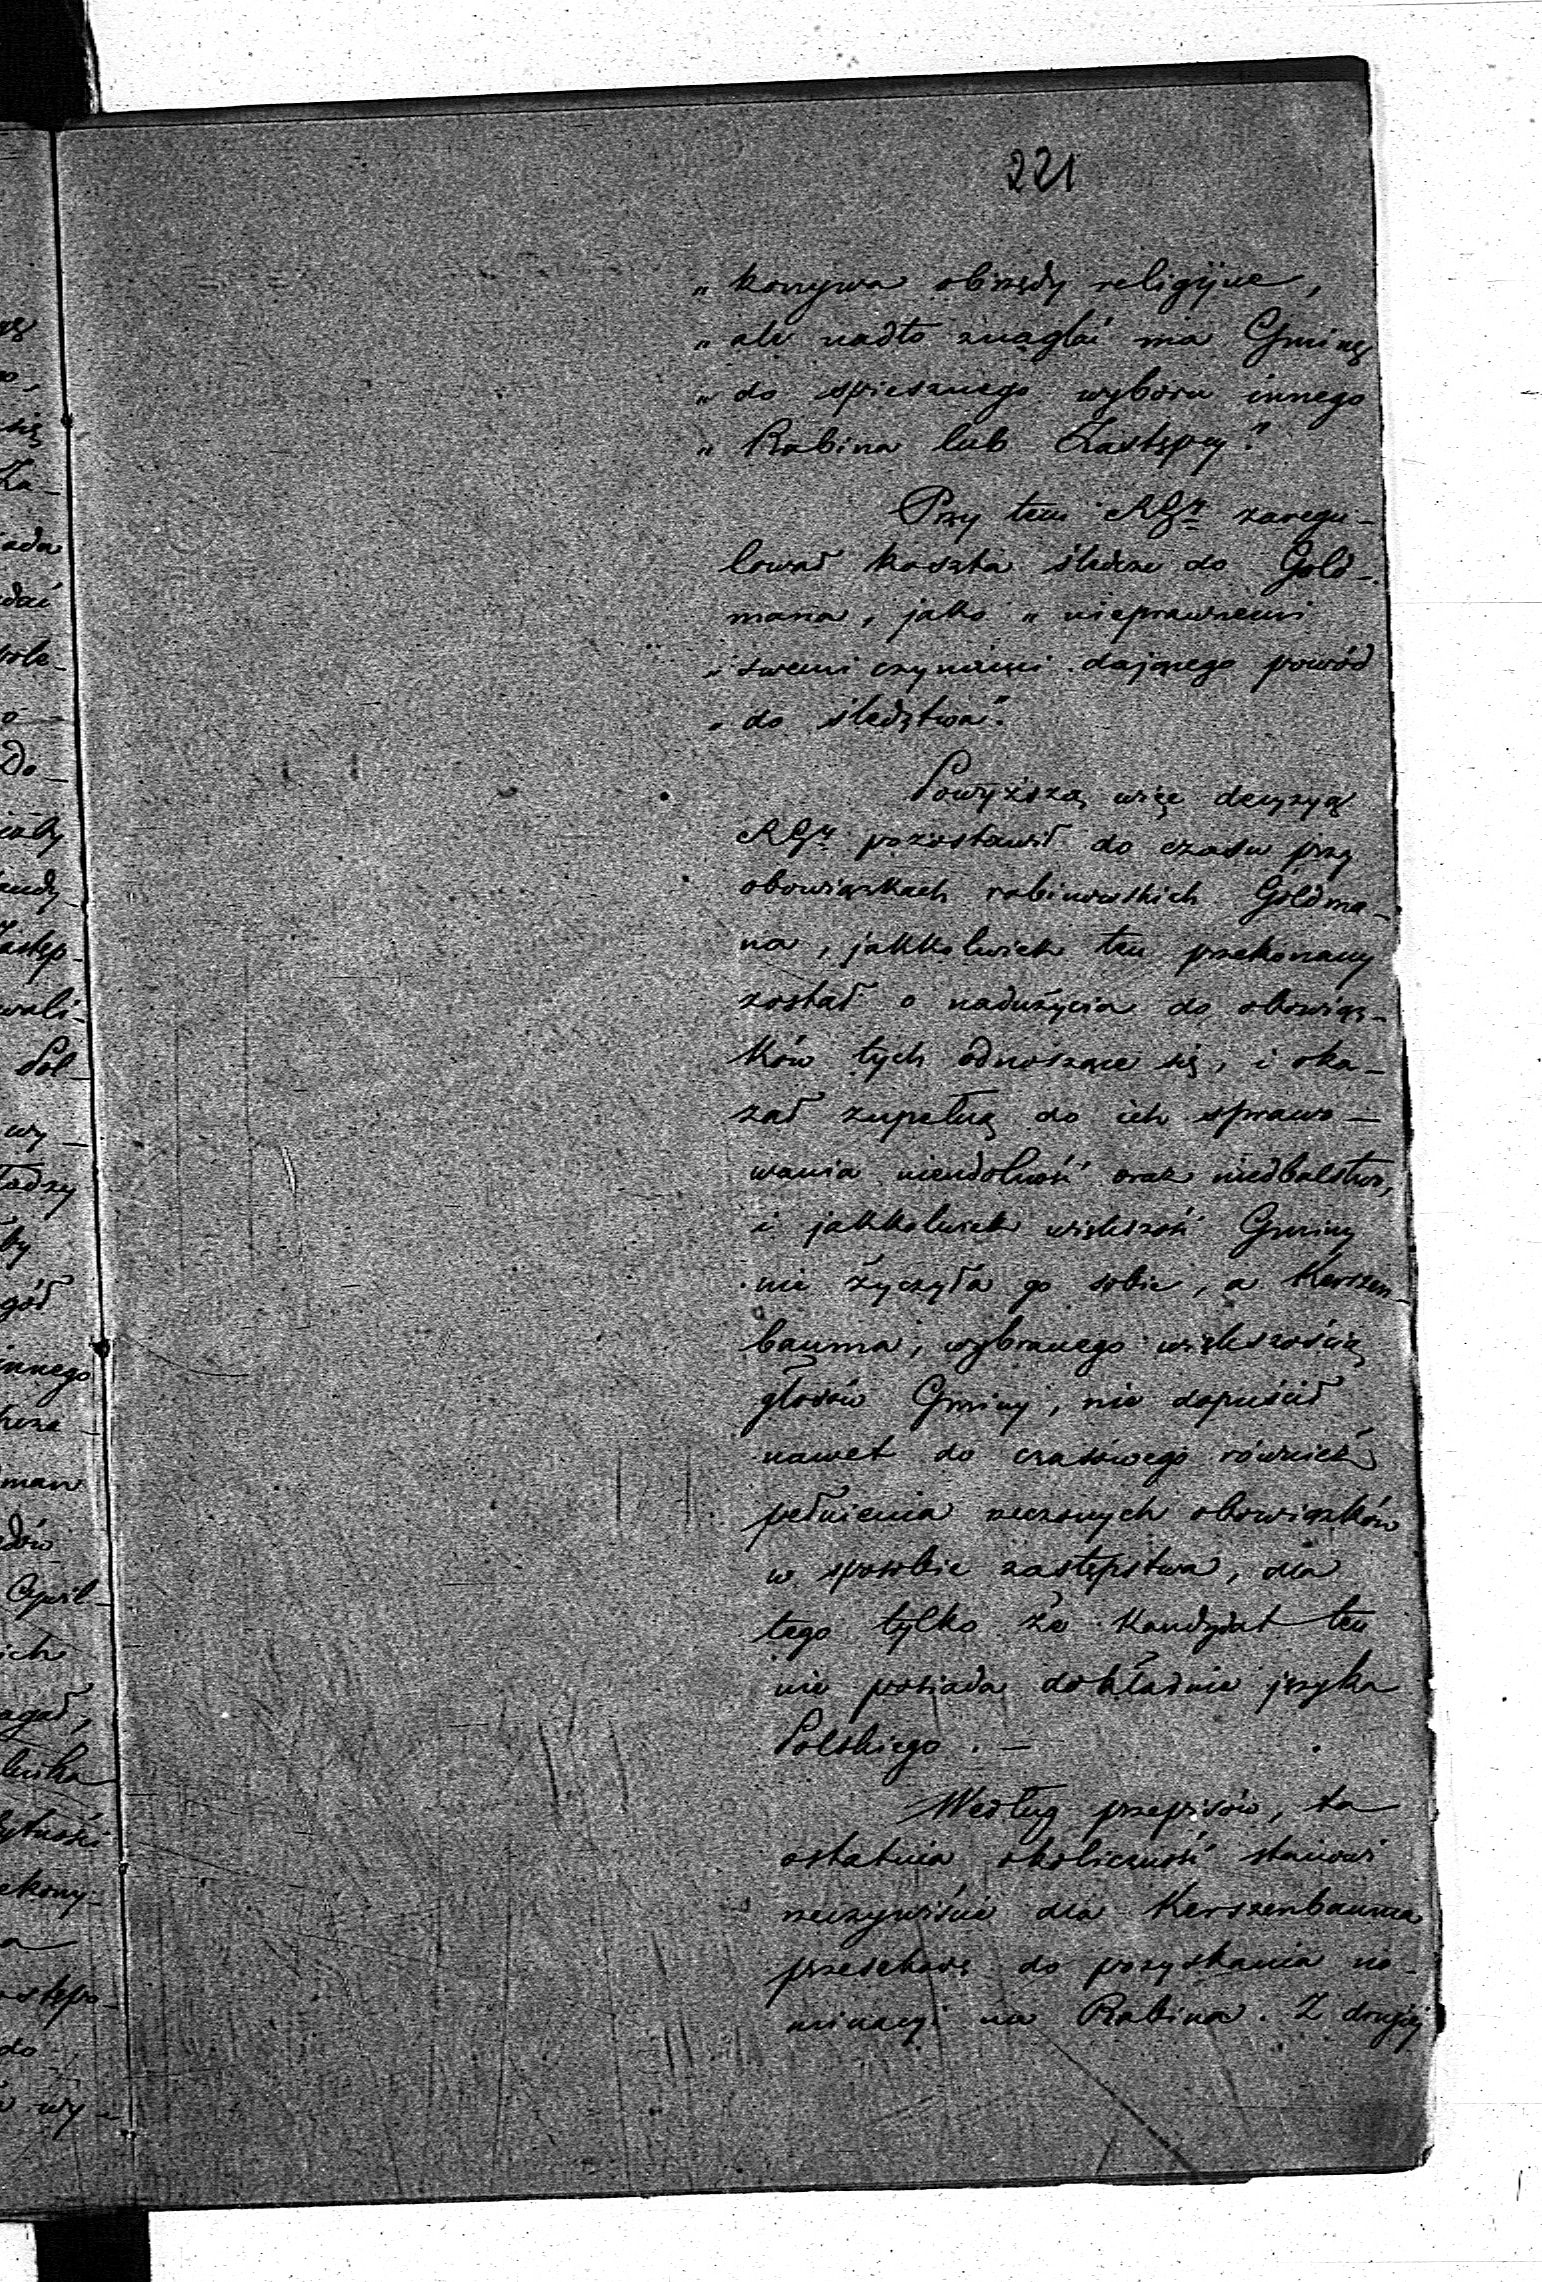 221
„ konywa obrzędy religijne,
„ ale nadto znaglać ma Gminę
„ do spiesznego wyboru innego
„ Rabina lub Zastępcy”.
Przy tem RGr zaregu-
lował koszta śledcze do Gold-
mana, jako „ nieprawnemi
„ swemi czynami dającego powód
„ do śledztwa”.
Powyższą więc decyzyą
RGr pozostawił do czasu przy
obowiązkach rabinowskich Goldma-
na, jakkolwiek ten przekonany
został o nadużycia do obowiąz-
ków tych odnoszące się, i oka-
zał zupełną do ich sprawo-
wania nieudolność oraz niedbalstwo,
i jakkolwiek większość Gminy
nie życzyła go sobie, a Kerszen-
bauma, wybranego większością
głosów Gminy, nie dopuścił
nawet do czasowego również
pełnienia rzeczonych obowiązków
w sposobie zastępstwa, dla
tego tylko że Kandydat ten
nie posiada dokładnie języka
Polskiego. —
Według przepisów, ta
ostatnia okoliczność stanowi
rzeczywiście dla Kerszenbauma
przeszkodę do pozyskania no-
minacyi na Rabina. Z drugiéj